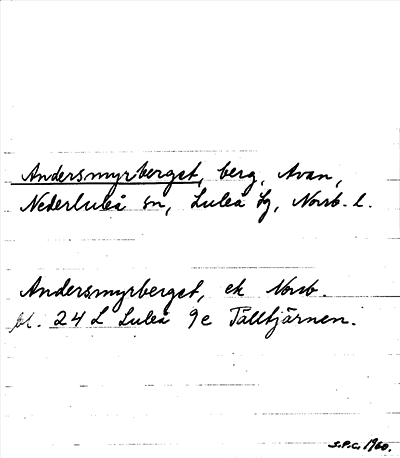 Andersmyrberget, berg, Avan,
Nederluleå sn, Luleå tg, Norrb. l.
Andersmyrberget, ek Norrb.
bl. 24 L Luleå 9e Tälltjärnen.
S.P.C. 1960.